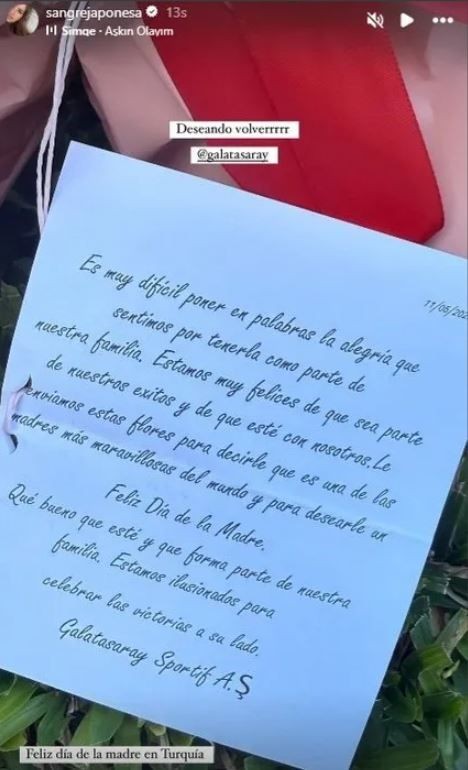 sangrejaponesa 13s
Simge · Aşkın Olayım
Deseando volverrrrr
@galatasaray
11/05/202
Es muy difícil poner en palabras la alegría que
sentimos por tenerla como parte de
nuestra familia. Estamos muy felices de que sea parte
de nuestros exitos y de que esté con nosotros.Le
enviamos estas flores para decirle que es una de las
madres más maravillosas del mundo y para desearle un
Feliz Día de la Madre.
Qué bueno que esté y que forma parte de nuestra
familia. Estamos ilusionados para
celebrar las victorias a su lado.
Galatasaray Sportif A.Ş
Feliz día de la madre en Turquía